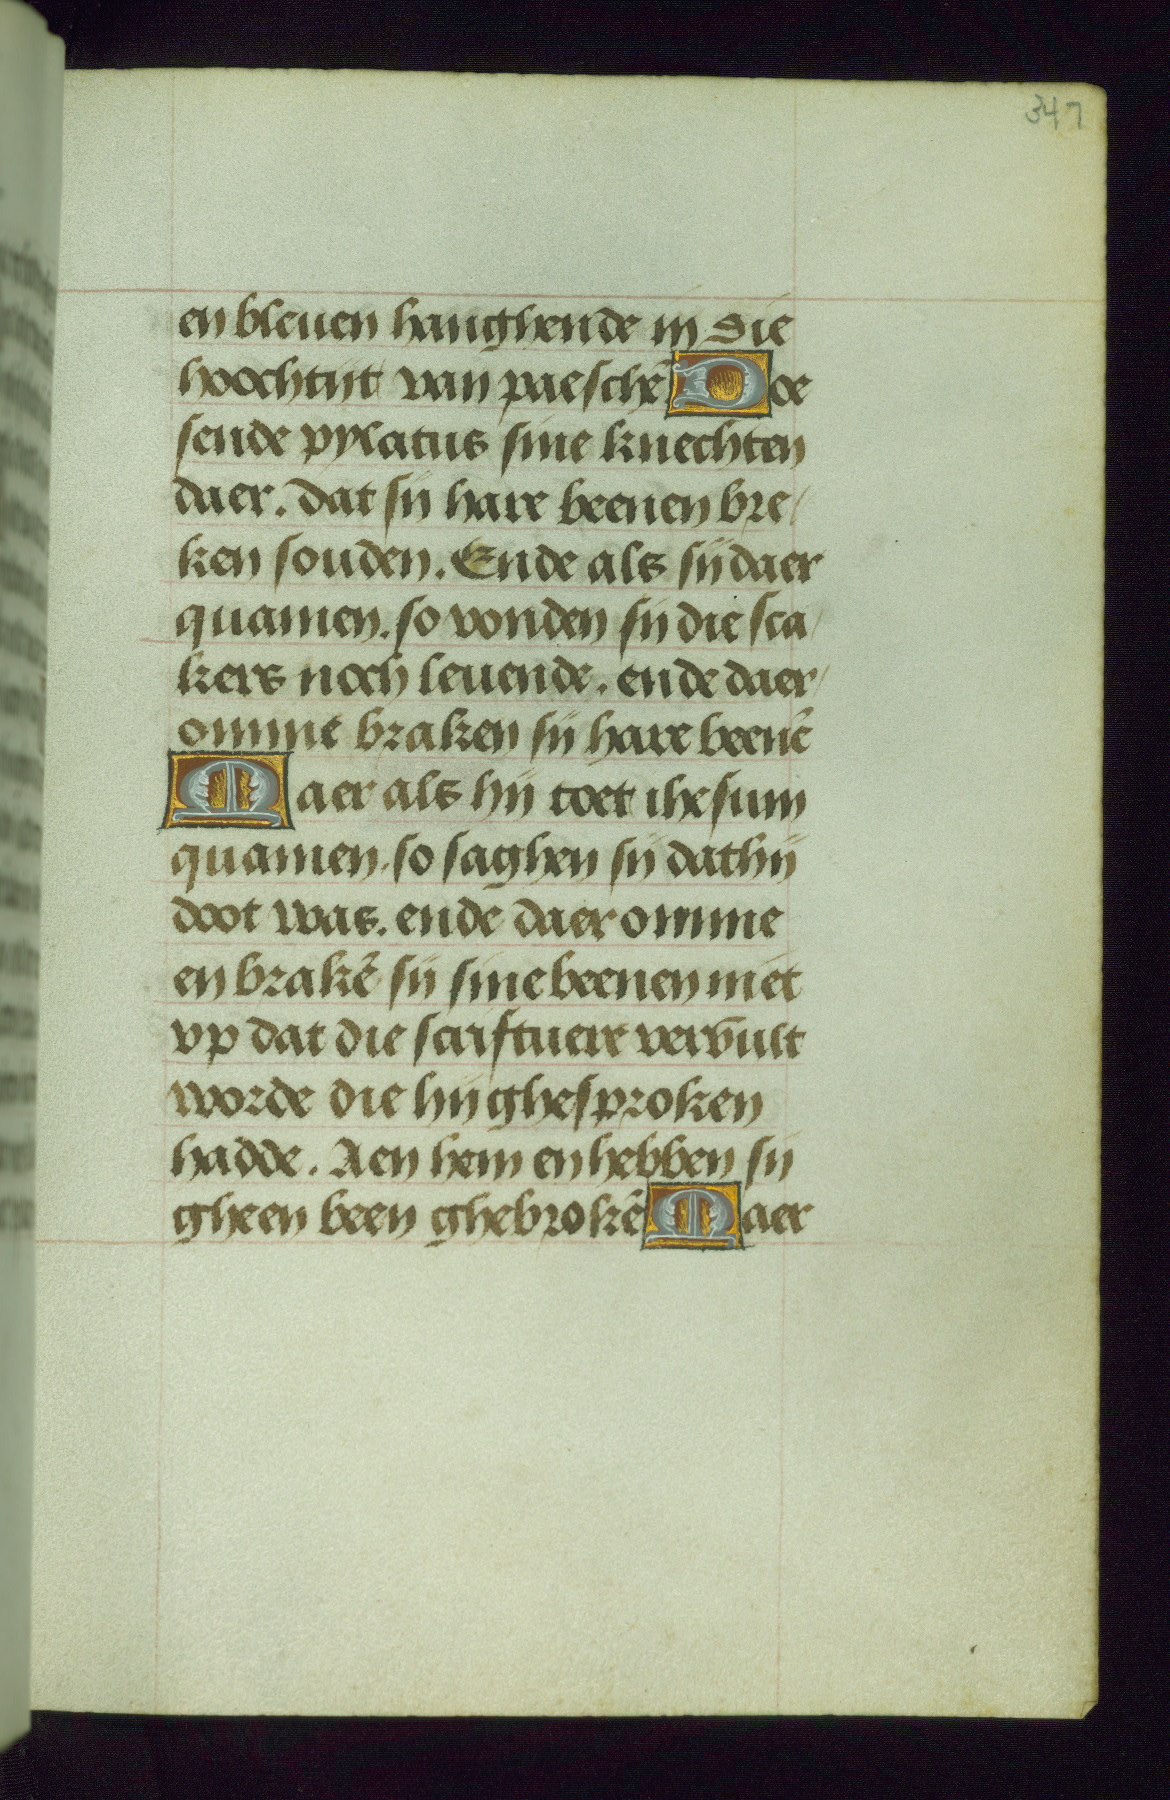 347
en bleuen hanghende in die
hoochtijt van paeschē Doe
sende pylatus sine knechten
daer. dat sij hare beenen bre/
ken souden. Ende als sij daer
quamen. so vonden sij die sca/
kers noch leuende. ende daer/
omme braken sij hare beenē
Maer als hij toet ihesum
quamen. so saghen sij dat hij
doot was. ende daer omme
en brakē sij sine beenen niet
vp dat die scriftuere vervult
worde die hij ghesproken
hadde. Aen hem en hebben sij
gheen been ghebrokē Maer